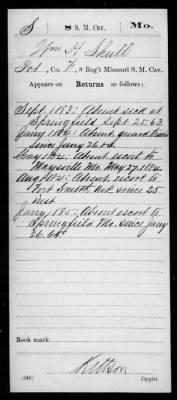 S 8 S. M. Cav. Mo.
Wm H. Skull
Pvt., Co. F, 8 Reg't Missouri S. M. Cav.
Appears on Returns as follows:
Sept. 1863: Absent sick at
Springfield Sept. 25.63
Jany 1864: Absent guard train
since Jany 26.64
May 1864: Absent escort to
Marysville Mo. May 27.1864
Aug 1864: Absent escort to
Fort Smith Ark since 25
inst
Jany 1865: Absent escort to
Springfield Mo. since Jany
26.65
Book mark
(546) Copyist.